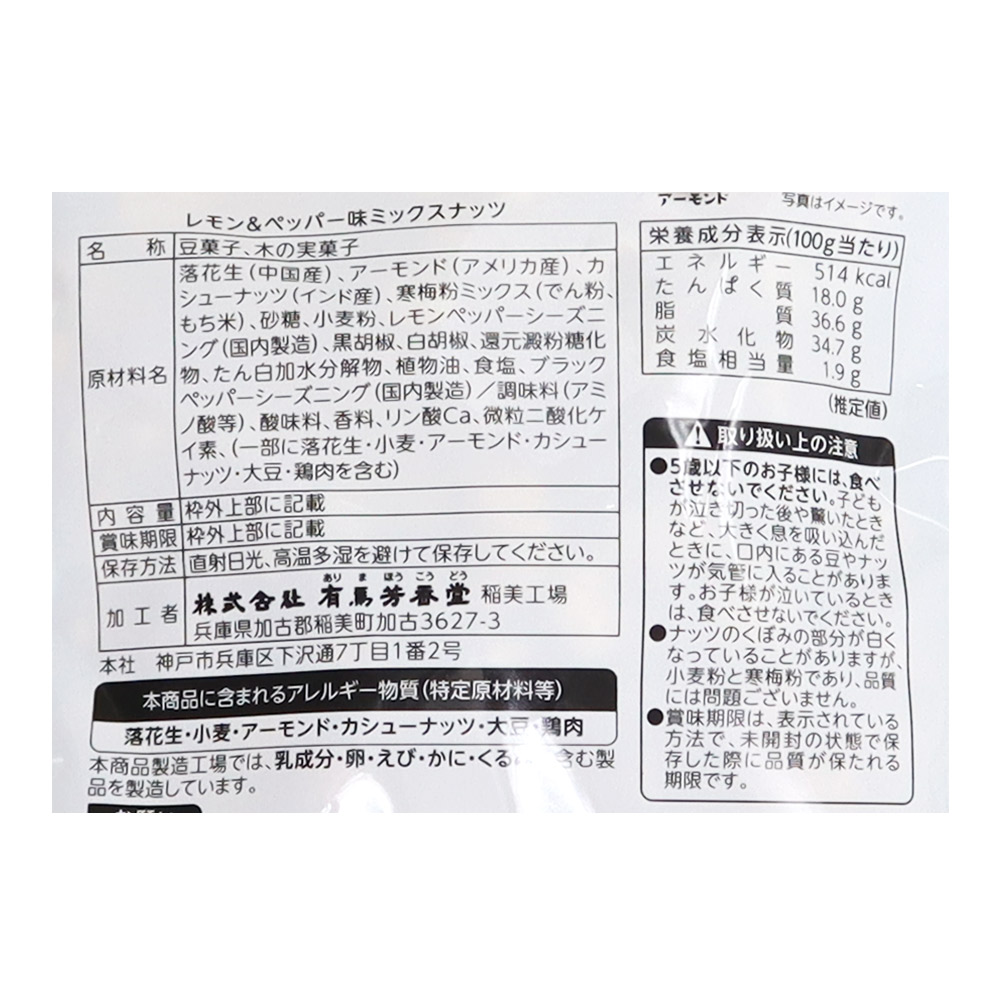 レモン&ペッパー味ミックスナッツ
名称 豆菓子、木の実菓子
原材料名 落花生(中国産)、アーモンド(アメリカ産)、カ
シューナッツ(インド産)、寒梅粉ミックス(でん粉、
もち米)、砂糖、小麦粉、レモンペッパーシーズニ
ング(国内製造)、黒胡椒、白胡椒、還元澱粉糖化
物、たん白加水分解物、植物油、食塩、ブラック
ペッパーシーズニング(国内製造)/調味料(アミ
ノ酸等)、酸味料、香料、リン酸Ca、微粒二酸化ケ
イ素、(一部に落花生・小麦・アーモンド・カシュー
ナッツ・大豆・鶏肉を含む)
内容量 枠外上部に記載
賞味期限 枠外上部に記載
保存方法 直射日光、高温多湿を避けて保存してください。
ありまほうこうどう
加工者 株式会社 有馬芳香堂 稲美工場
兵庫県加古郡稲美町加古3627-3
本社 神戸市兵庫区下沢通7丁目1番2号
本商品に含まれるアレルギー物質(特定原材料等)
落花生・小麦・アーモンド・カシューナッツ・大豆・鶏肉
本商品製造工場では、乳成分・卵・えび・かに・くる 含む製
品を製造しています。
アーモンド
写真はイメージです。
栄養成分表示(100g当たり)
エネルギー 514 kcal
たんぱく質 18.0 g
脂質 36.6 g
炭水化物 34.7 g
食塩相当量 1.9 g
(推定値)
取り扱い上の注意
●5歳以下のお子様には、食べ
させないでください。子ども
が泣き切った後や驚いたとき
など、大きく息を吸い込んだ
ときに、口内にある豆やナッ
ツが気管に入ることがありま
す。お子様が泣いているとき
は、食べさせないでください。
●ナッツのくぼみの部分が白く
なっていることがありますが、
小麦粉と寒梅粉であり、品質
には問題ございません。
●賞味期限は、表示されている
方法で、未開封の状態で保
存した際に品質が保たれる
期限です。